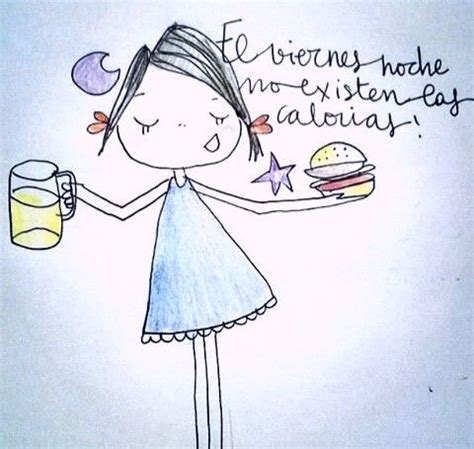 El viernes noche
no existen las
calorias!